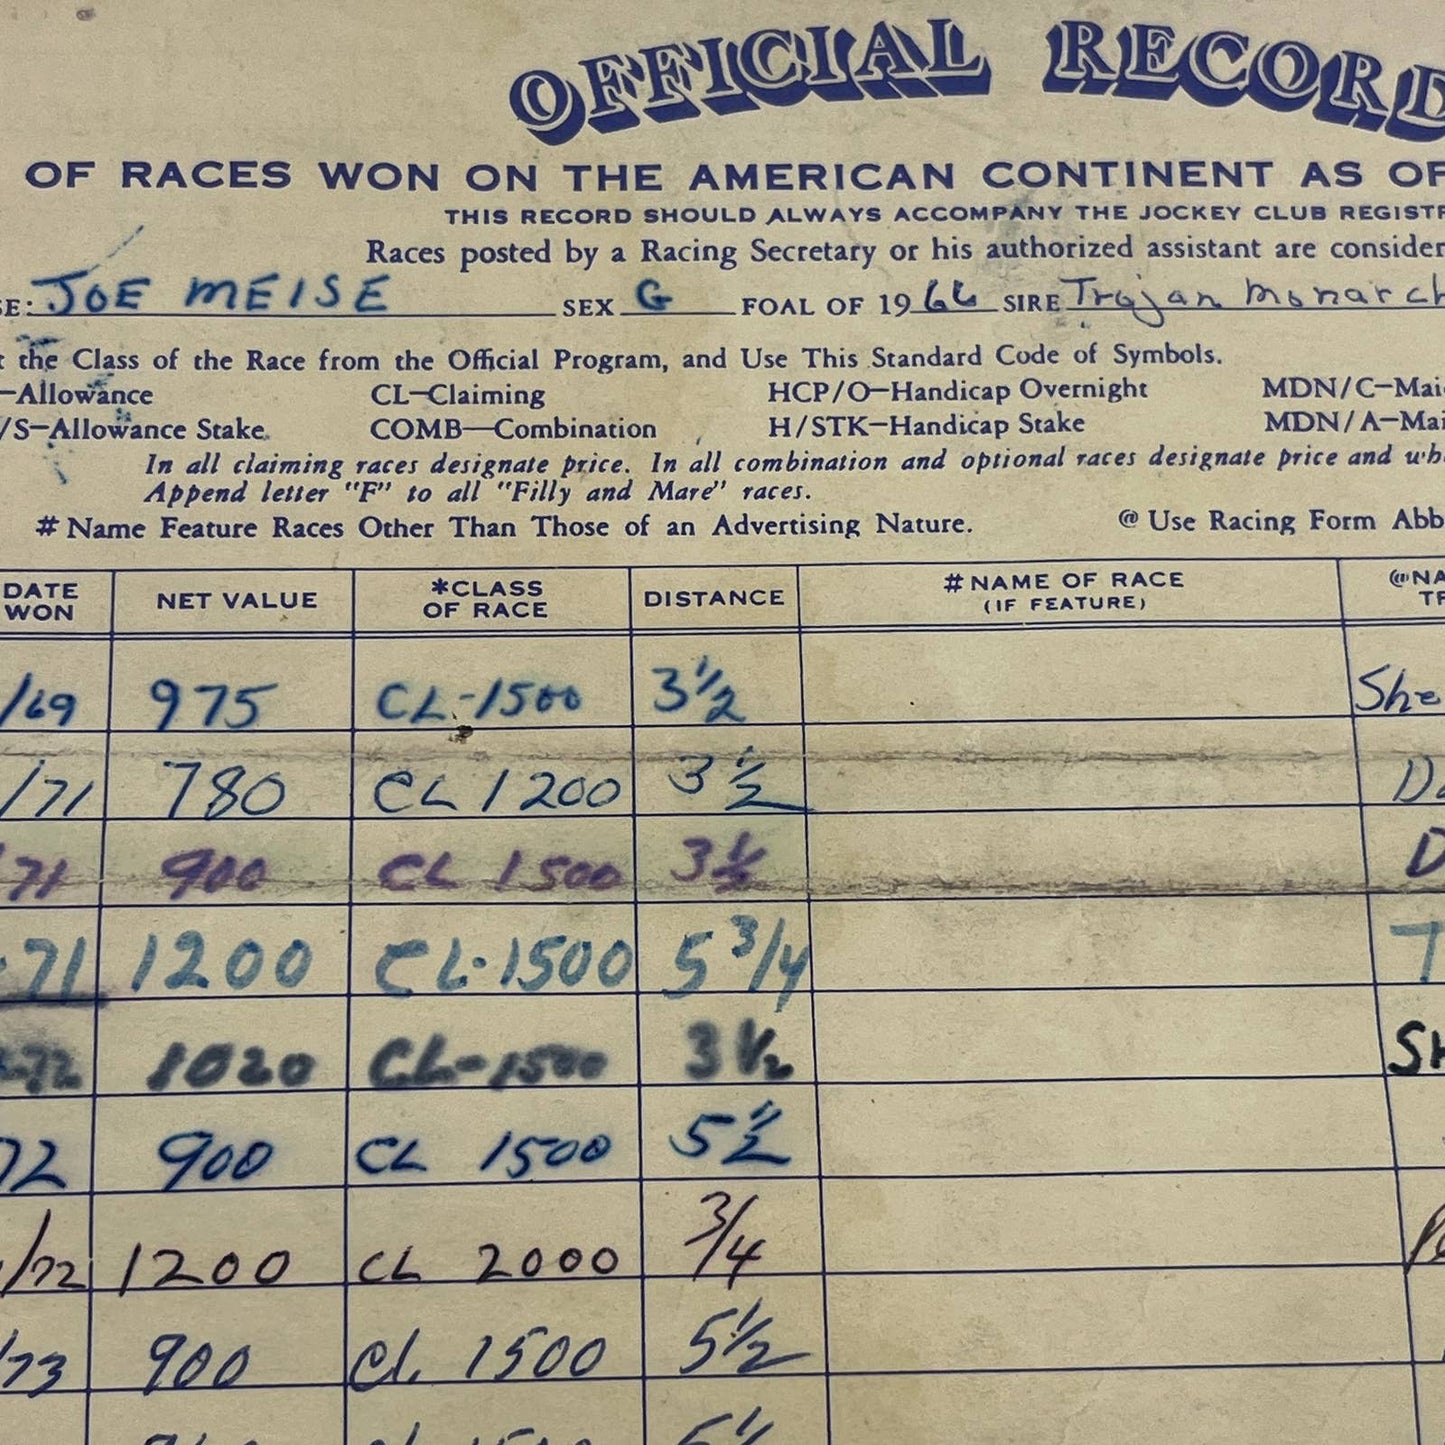 OFFICIAL RECORD
OF RACES WON ON THE AMERICAN CONTINENT AS OF
THIS RECORD SHOULD ALWAYS ACCOMPANY THE JOCKEY CLUB REGISTR
Races posted by a Racing Secretary or his authorized assistant are consider
SE: JOE MEISE SEX G FOAL OF 1966 SIRE Trojan Monarch
t the Class of the Race from the Official Program, and Use This Standard Code of Symbols.
—Allowance CL—Claiming HCP/O—Handicap Overnight MDN/C—Mai
/S—Allowance Stake COMB—Combination H/STK—Handicap Stake MDN/A—Mai
In all claiming races designate price. In all combination and optional races designate price and whe
Append letter "F" to all "Filly and Mare" races.
# Name Feature Races Other Than Those of an Advertising Nature. @ Use Racing Form Abb
DATE WON NET VALUE *CLASS OF RACE DISTANCE # NAME OF RACE (IF FEATURE) @NA TR
/69 975 CL-1500 3 1/2 She
/71 780 CL 1200 3 1/2 Da
/71 900 CL 1500 3 1/2 D
-71 1200 CL-1500 5 3/4 T
-72 1020 CL-1500 3 1/2 SH
72 900 CL 1500 5 1/2
/72 1200 CL 2000 3/4
/73 900 CL 1500 5 1/2
CL 1500 5 1/2